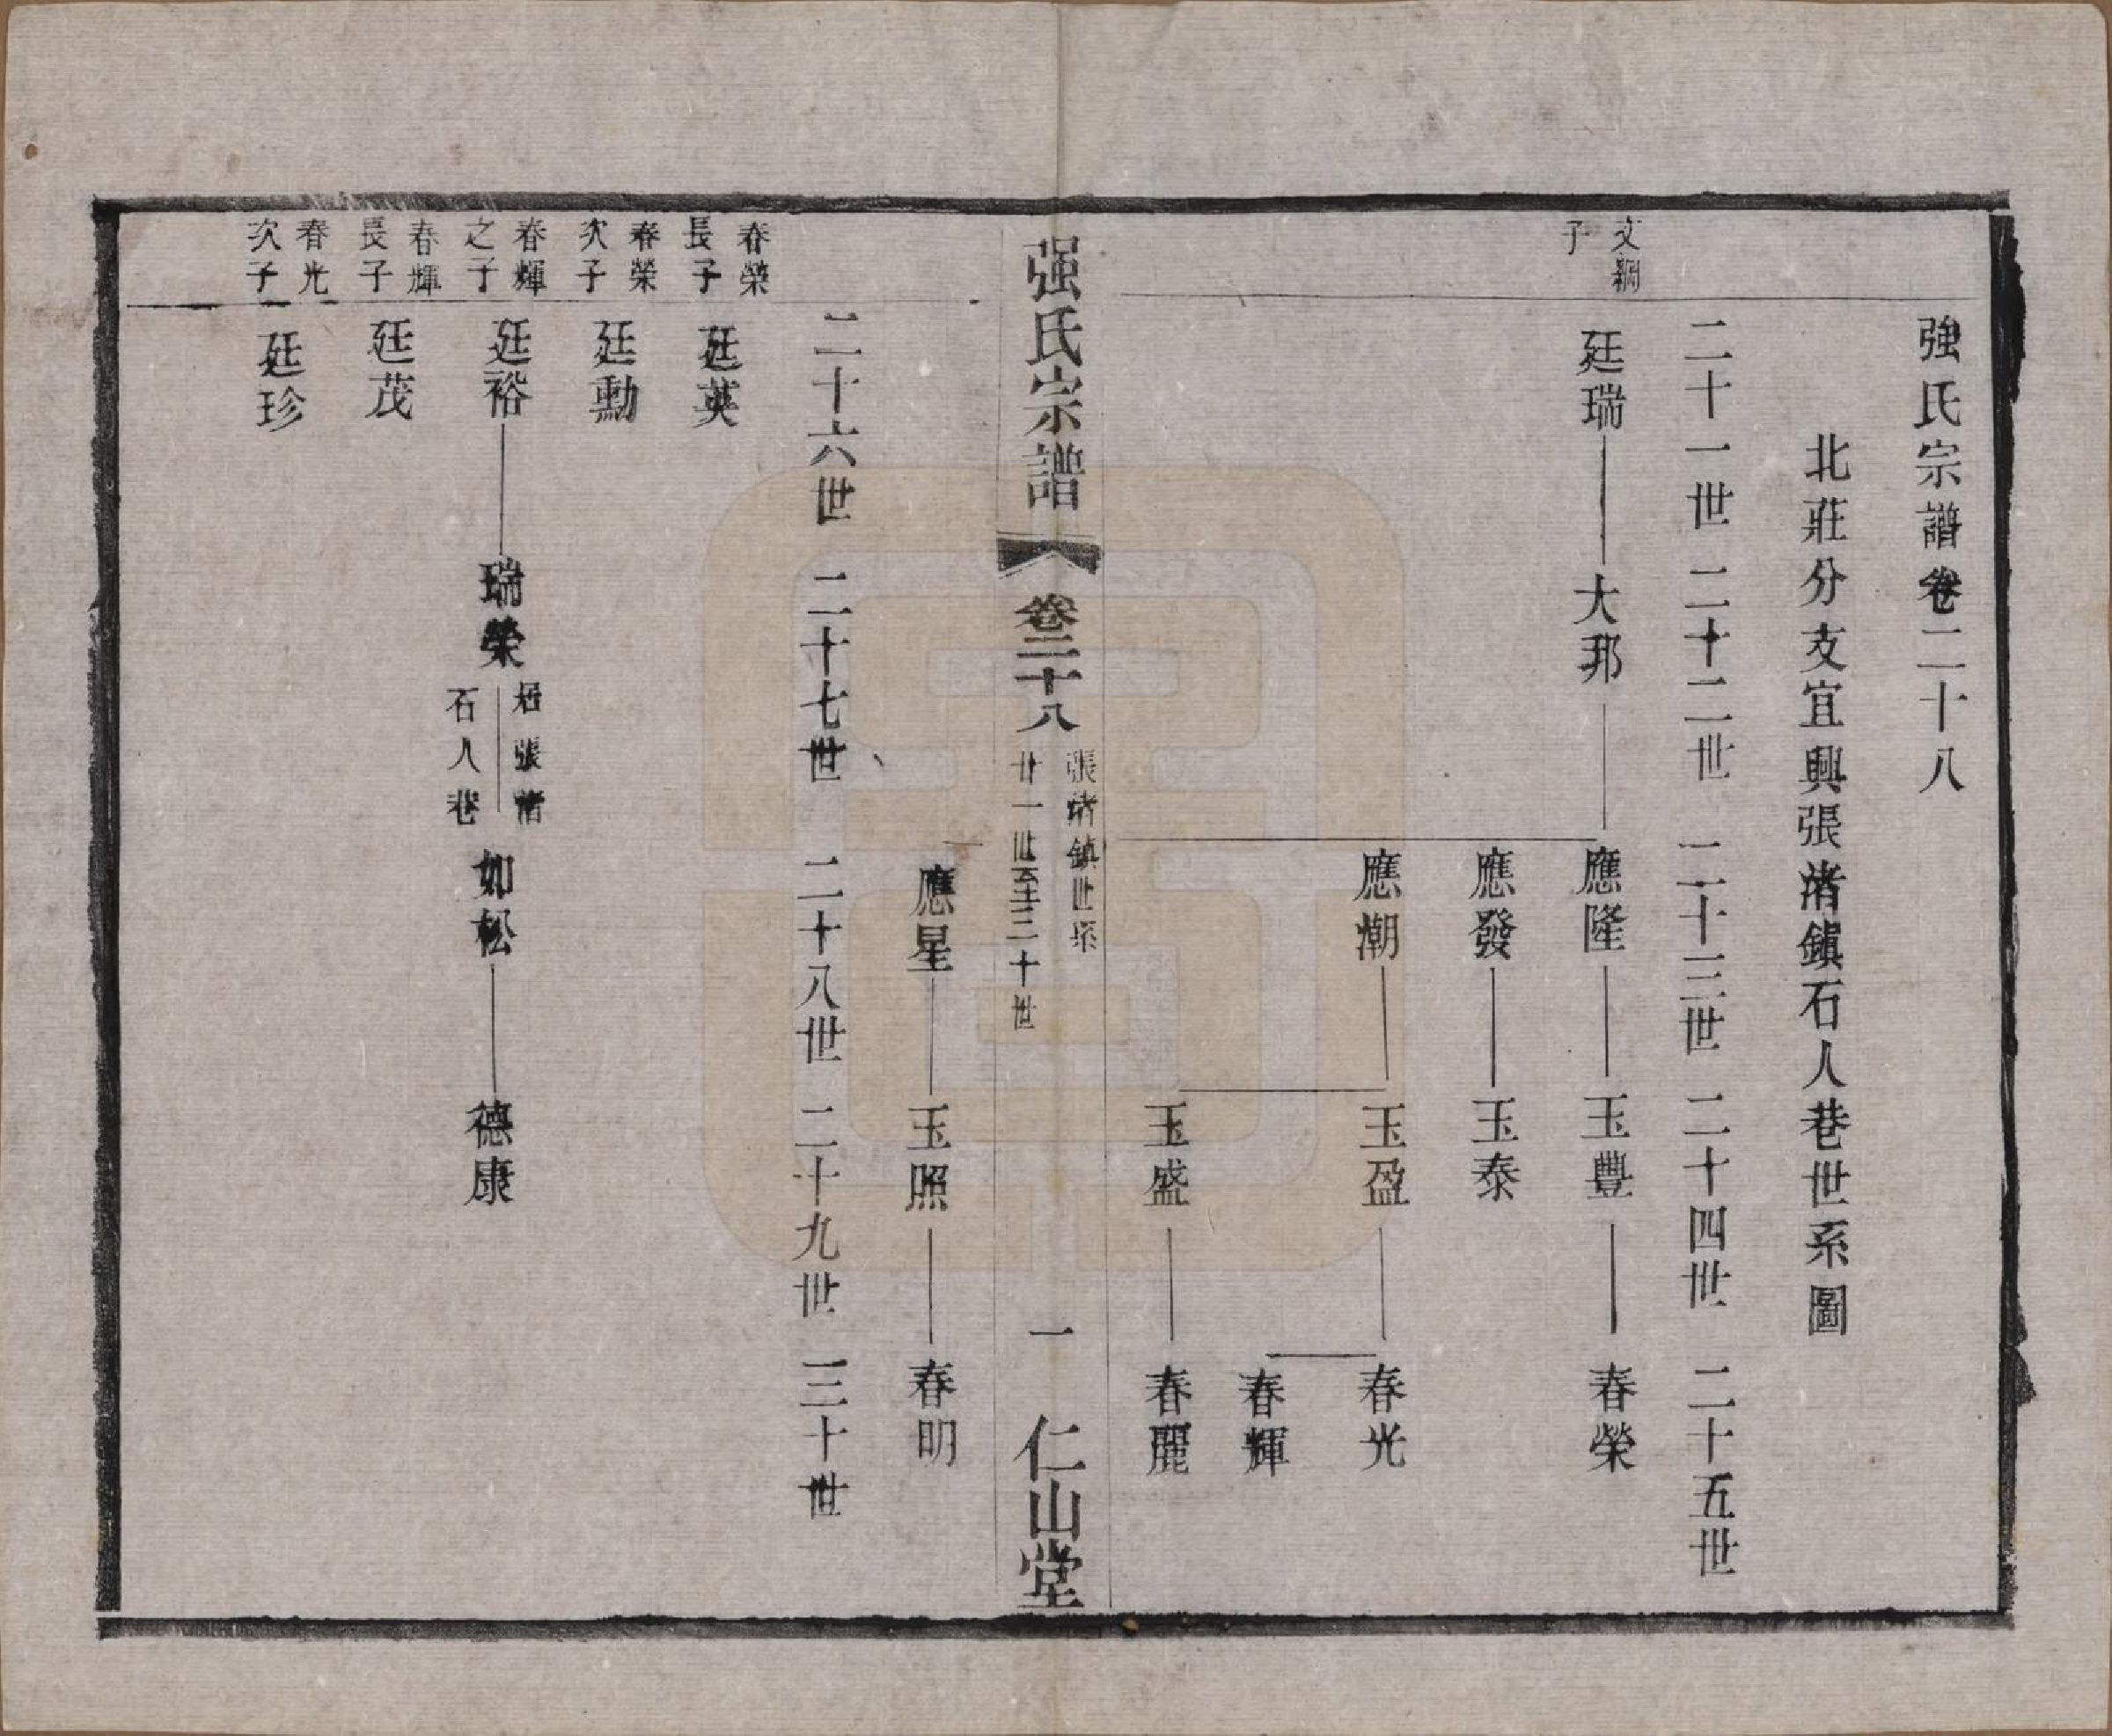 強氏宗譜卷二十八
北莊分支宜興張渚鎮石人巷世系圖
二十一世 二十二世 二十三世 二十四世 二十五世
文綱
子
廷瑞 大邦 應隆 玉豐 春榮
應發 玉泰
應潮 玉盈 春光
春輝
玉盛 春麗
强氏宗譜 卷二十八 張渚鎮世系 廿一世至三十世 一 仁山堂
應星 玉照 春明
二十六世 二十七世 二十八世 二十九世 三十世
春榮
長子
廷英
春榮
次子
廷勳
春輝
之子
廷裕 瑞榮 居張渚 石人巷 如松 德康
春輝
長子
廷茂
春光
次子
廷珍